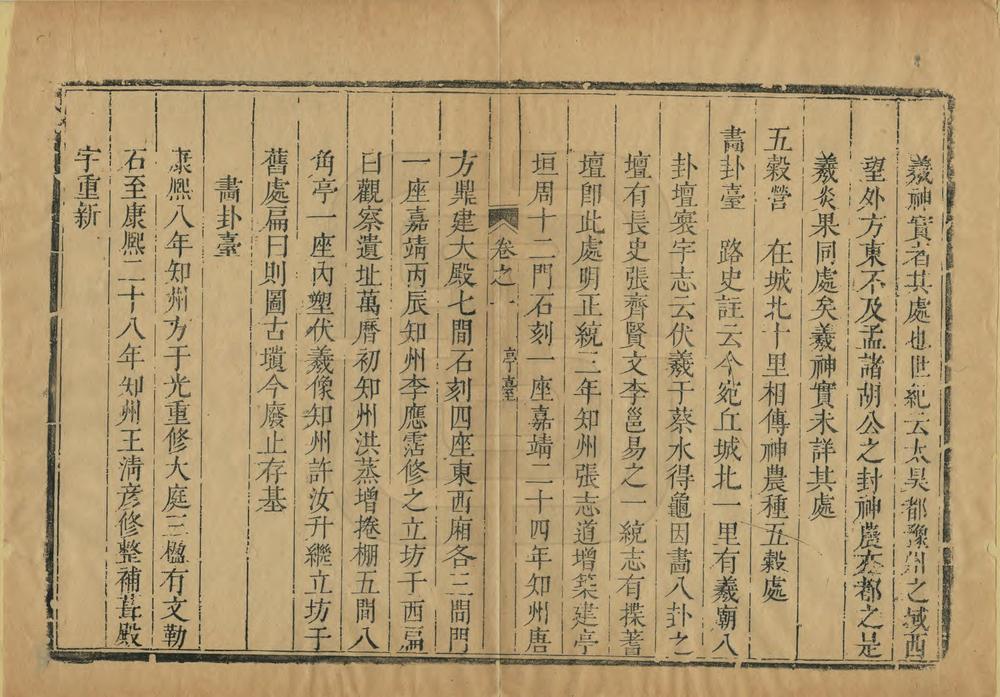 羲神實者其處也世紀云太昊都豫州之域西
望外方東不及孟諸胡公之封神農亦都之是
羲炎果同處矣羲神實未詳其處
五穀營　在城北十里相傳神農種五穀處
畵卦臺　路史註云今宛丘城北一里有羲廟八
卦壇寰宇志云伏羲于蔡水得龜因畵八卦之
壇有長史張齊賢文李邕易之一統志有揲蓍
壇卽此處明正統三年知州張志道增築建亭
垣周十二門石刻一座嘉靖二十四年知州唐
卷之一　亭臺
方鼎建大殿七間石刻四座東西廂各三間門
一座嘉靖丙辰知州李應霑修之立坊于西扁
曰觀察遺址萬曆初知州洪蒸增捲棚五間八
角亭一座內塑伏羲像知州許汝升繼立坊于
舊處扁曰則圖古壝今廢止存基
畵卦臺
康熙八年知州方于光重修大庭三楹有文勒
石至康熙二十八年知州王淸彦修整補葺殿
宇重新